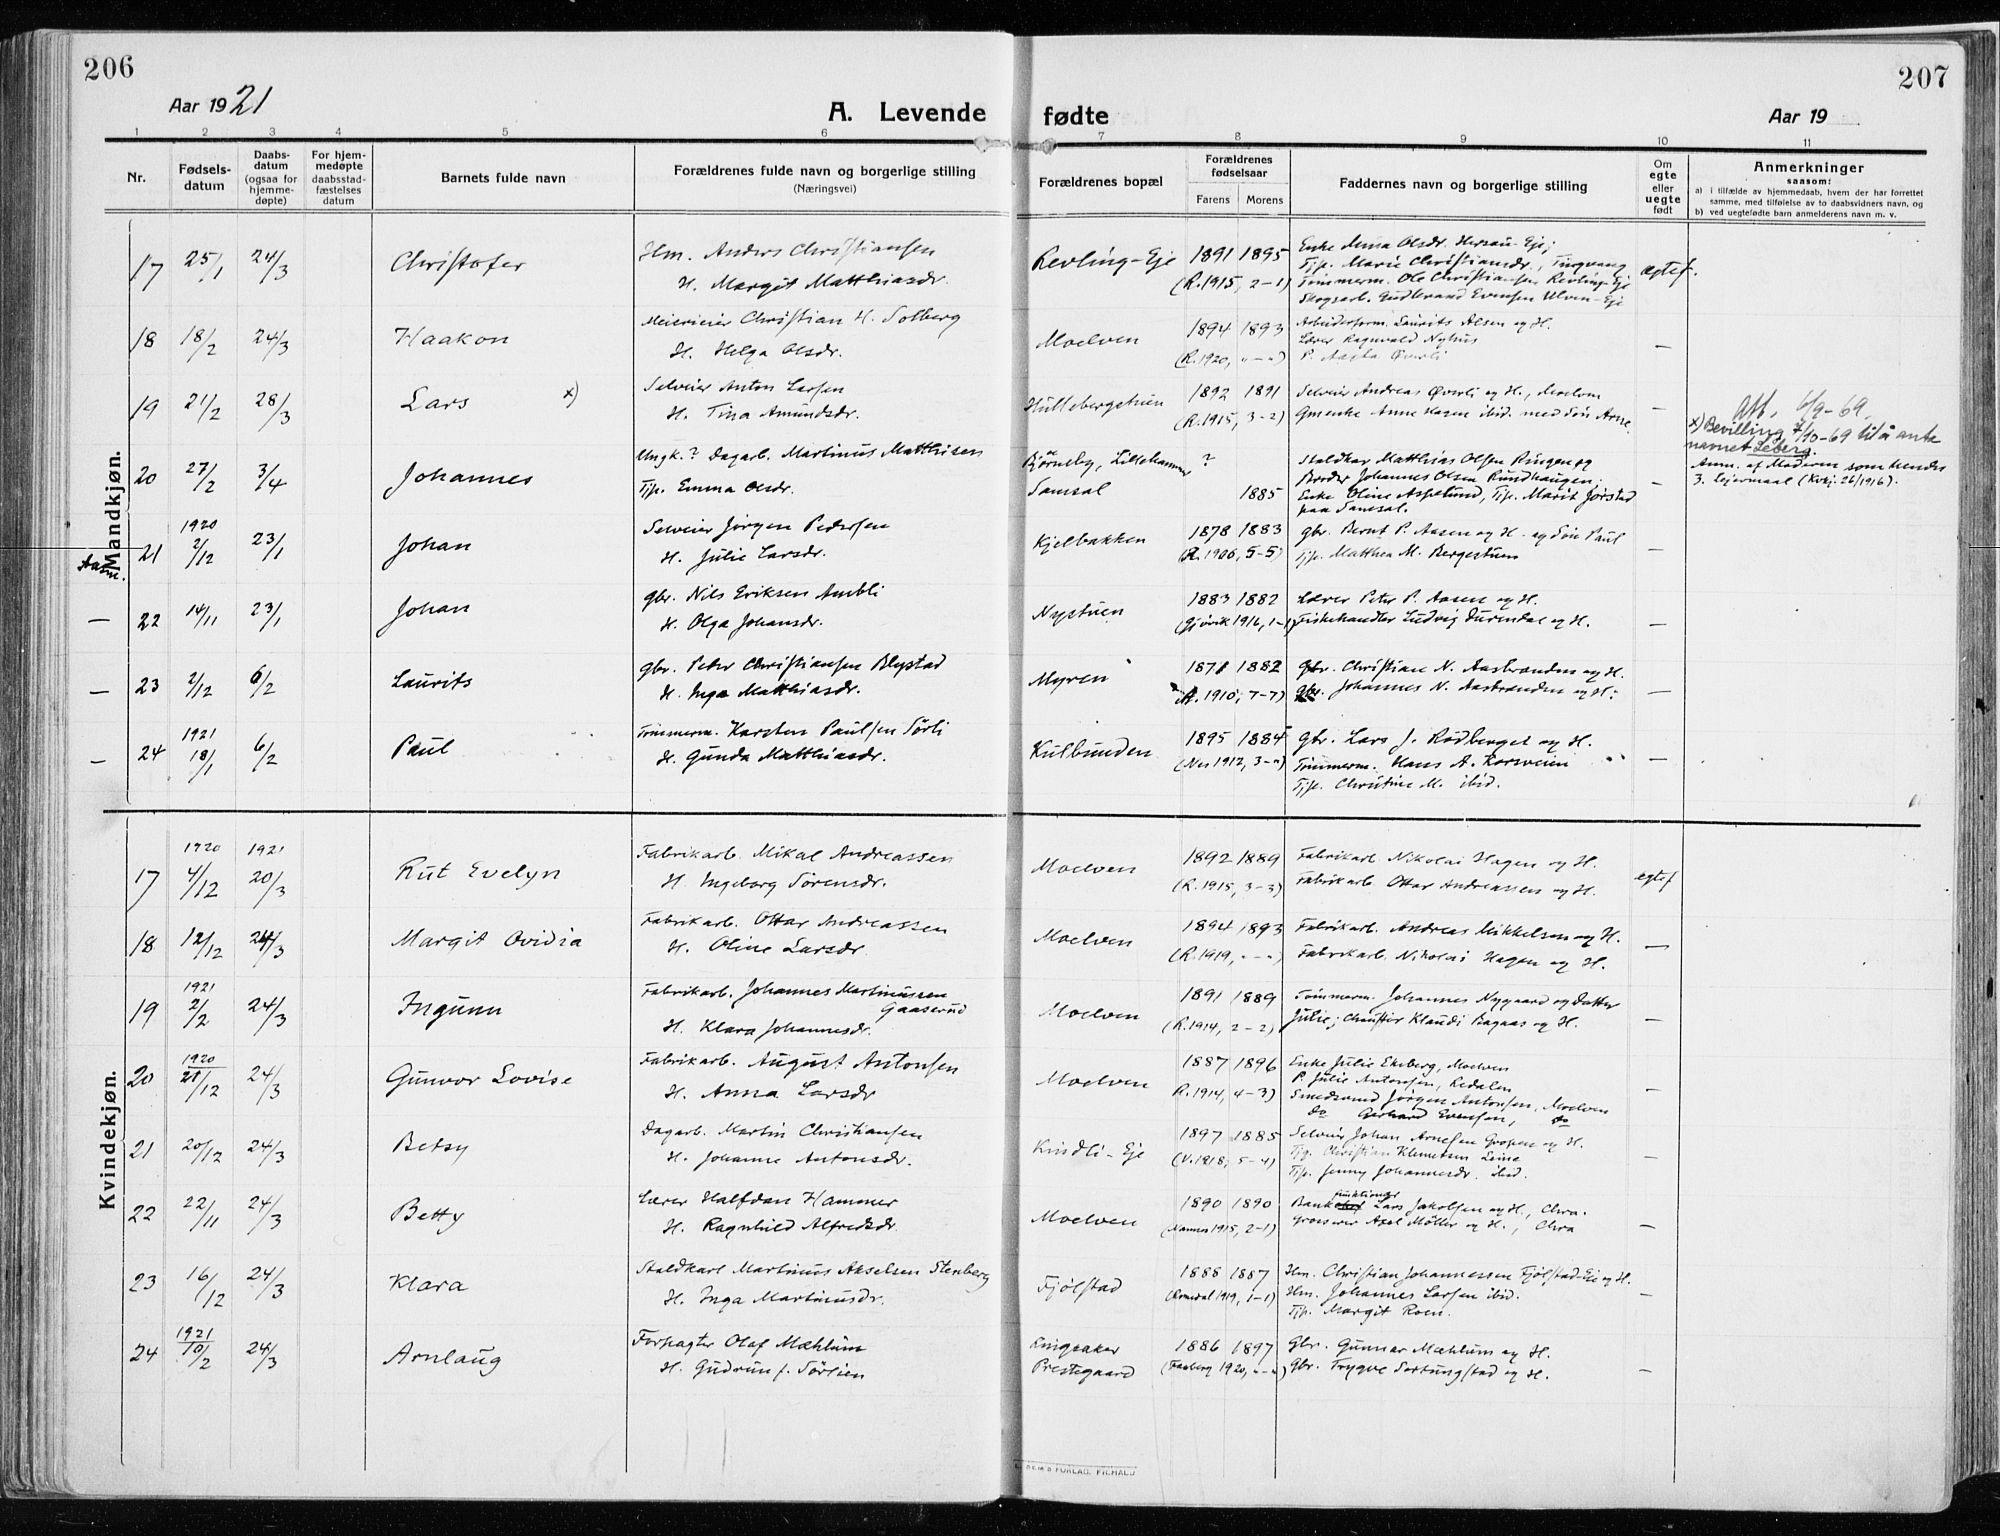 206
207
Aar 1921
A. Levende fødte
Aar 19
1 2 3 4 5 6 7 8 9 10 11
Nr.
Fødsels-
datum
Daabs-
datum
(ogsaa for
hjemme-
døpte)
For hjem-
medøpte
daabsstad-
fæstelses
datum
Barnets fulde navn
Forældrenes fulde navn og borgerlige stilling
(Næringsvei)
Forældrenes bopæl
Forældrenes
fødselsaar
Farens Morens
Faddernes navn og borgerlige stilling
Om
egte
eller
uegte
født
Anmerkninger
saasom:
a) i tilfælde av hjemmedaab, hvem der har forrettet
samme, med tilføielse av to daabsvidners navn, og
b) ved uegtefødte barn anmelderens navn m. v.
Mandkjøn.
17 25/1 24/3 Christofer Hm. Anders Christiansen Revling-Eje 1891 1895 Enke Mina Olsdr.
H. Margit Matthiasdr. (R. 1915, 2-1) Tjp. Marie Christiansdr., Tingvang
Tømmerm. Ole Christiansen Revling-Eje
Skogsarb. Gudbrand Evensen Ulven-Eje
18 18/2 24/3 Haakon Meierieier Christian H. Solberg Moelven 1894 1893 Arbeiderform. Laurits Olsen og H.
H. Helga Olsdr. (R. 1920, „-„) Lærer Ragnvald Nyhus —
P. Aasta Øverli
19 21/2 28/3 Lars x) Selveier Anton Larsen Hullebergstuen 1892 1891 Selveier Andreas Øverli og H.,
H. Tina Amundsdr. (R. 1915, 3-2) Gmenke Anne Hasen ibid. med Søn Arne. —
6/9-69
x) Bevilling 7/10-69 til å anta
navnet Leberg.
20 27/2 3/4 Johannes Ungk.? Dagarb. Martinus Matthisen Bjørneby, Lillehammer ? Staldkar Matthias Olsen Ringen og
Broder Johannes Olsen Rundhaugen;
Tjp. Emma Olsdr. Samsal 1885 Enke Oline Asplund, Tjp. Marit Jørstad —
paa Samsal.
Anm. af Moderen som hendes
3. Lejermaal (Kvkj. 26/1916).
21 1920 2/12 23/1 Johan Selveier Jørgen Pedersen Kjelbakken 1878 1883 Gbr. Bernt P. Aasen og H. og Søn Paul
H. Julie Larsdr. (R. 1906, 5-5) Tjp. Matthea M. Bergestuen —
22 14/11 23/1 Johan Gbr. Nils Eriksen Ambli Nystuen 1883 1882 Lærer Peter P. Aasen og H.
H. Olga Johansdr. (Gjøvik 1916, 1-1) Fiskehandler Ludvig Furendal og H. —
23 2/12 6/2 Laurits Gbr. Peter Christiansen Blystad Myren 1878 1882 Gbr. Christian N. Aasbrenden og H.
H. Inga Matthiasdr. (A. 1910, 7-7) Gbr. Johannes N. Aasbrenden og H. —
24 1921 18/1 6/2 Paul Tømmerm. Karsten Paulsen Sørli Kulbunden 1895 1884 Gbr. Lars J. Rødberget og H.
H. Gunda Matthiasdr. (Nes 1912, 3-„) Tømmerm. Hans A. Korsveien —
Tjp. Christine M. ibid.
Kvindekjøn.
17 1920 4/12 1921 20/3 Rut Evelyn Fabrikarb. Mikal Andreassen Moelven 1892 1889 Fabrikarb. Nikolai Hagen og H. egtef
H. Ingeborg Sørensdr. (R. 1915, 3-3) Fabrikarb. Ottar Andreassen og H.
18 12/12 24/3 Margit Ovidia Fabrikarb. Ottar Andreassen Moelven 1894 1893 Fabrikarb. Andreas Mikkelsen og H.
H. Oline Larsdr. (R. 1919, „-„) Fabrikarb. Nikolai Hagen og H. —
19 1921 2/2 24/3 Ingunn Fabrikarb. Johannes Martinussen Gaaserud Moelven 1891 1889 Tømmerm. Johannes Nygaard og Datter
H. Klara Johannesdr. (R. 1914, 2-2) Julie; Chauffør Klaudi Bagaas og H. —
20 1920 21/12 24/3 Gunvor Lovise Fabrikarb. August Antonsen Moelven 1887 1896 Enke Julie Ekeberg, Moelven
P. Julie Antonsen, Redalen
H. Anna Larsdr (R. 1914, 4-3) Smedsvend Jørgen Antonsen, Moelven —
do Gerhard Evensen, do
21 20/12 24/3 Betsy Dagarb. Martin Christiansen Kindli-Eje 1897 1885 Selveier Johan Arnesen Gropen og H.
H. Johanne Antonsdr. (V. 1918, 5-4) Tjg. Christian Klemetsen Leine
Tjp. Jenny Johannesdr. ibid.
22 22/11 24/3 Betty Lærer Halfdan Hammer Moelven 1890 1890 Bankfunktionær Lars Jakobsen og H., Chra.
H. Ragnhild Alfredsdr. (Nannes 1915, 2-1) Grosserer Axel Møller og H., Chra —
23 16/12 24/3 Klara Staldkarl Martinus Akselsen Stenberg Fjølstad 1888 1887 Hm. Christian Johannessen Fjølstad-Eje og H.
H. Inga Martinusdr. (Romedal 1919, 1-1) Hm. Johannes Larsen ibid. —
Tjp. Margit Roen.
24 1921 10/2 24/3 Arnlaug Forpagter Olaf Mæhlum Ringsaker 1886 1897 Gbr. Gunnar Mæhlum og H.
H. Gudrun f. Sørlien Prestegaard (Faaberg 1920, „-„) Gbr. Trygve Sortungstad og H. —